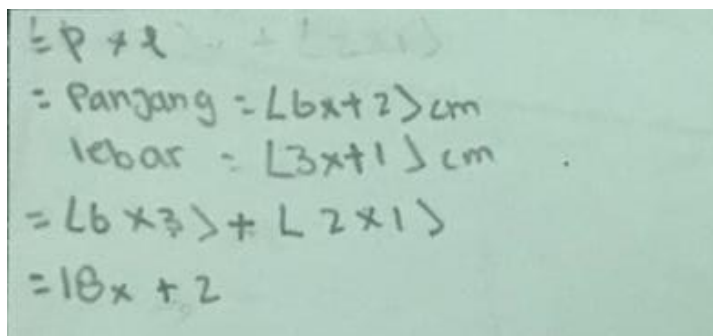 = P × l
= Panjang = (6x+2) cm
lebar = (3x+1) cm
= (6×3) + (2×1)
= 18x + 2